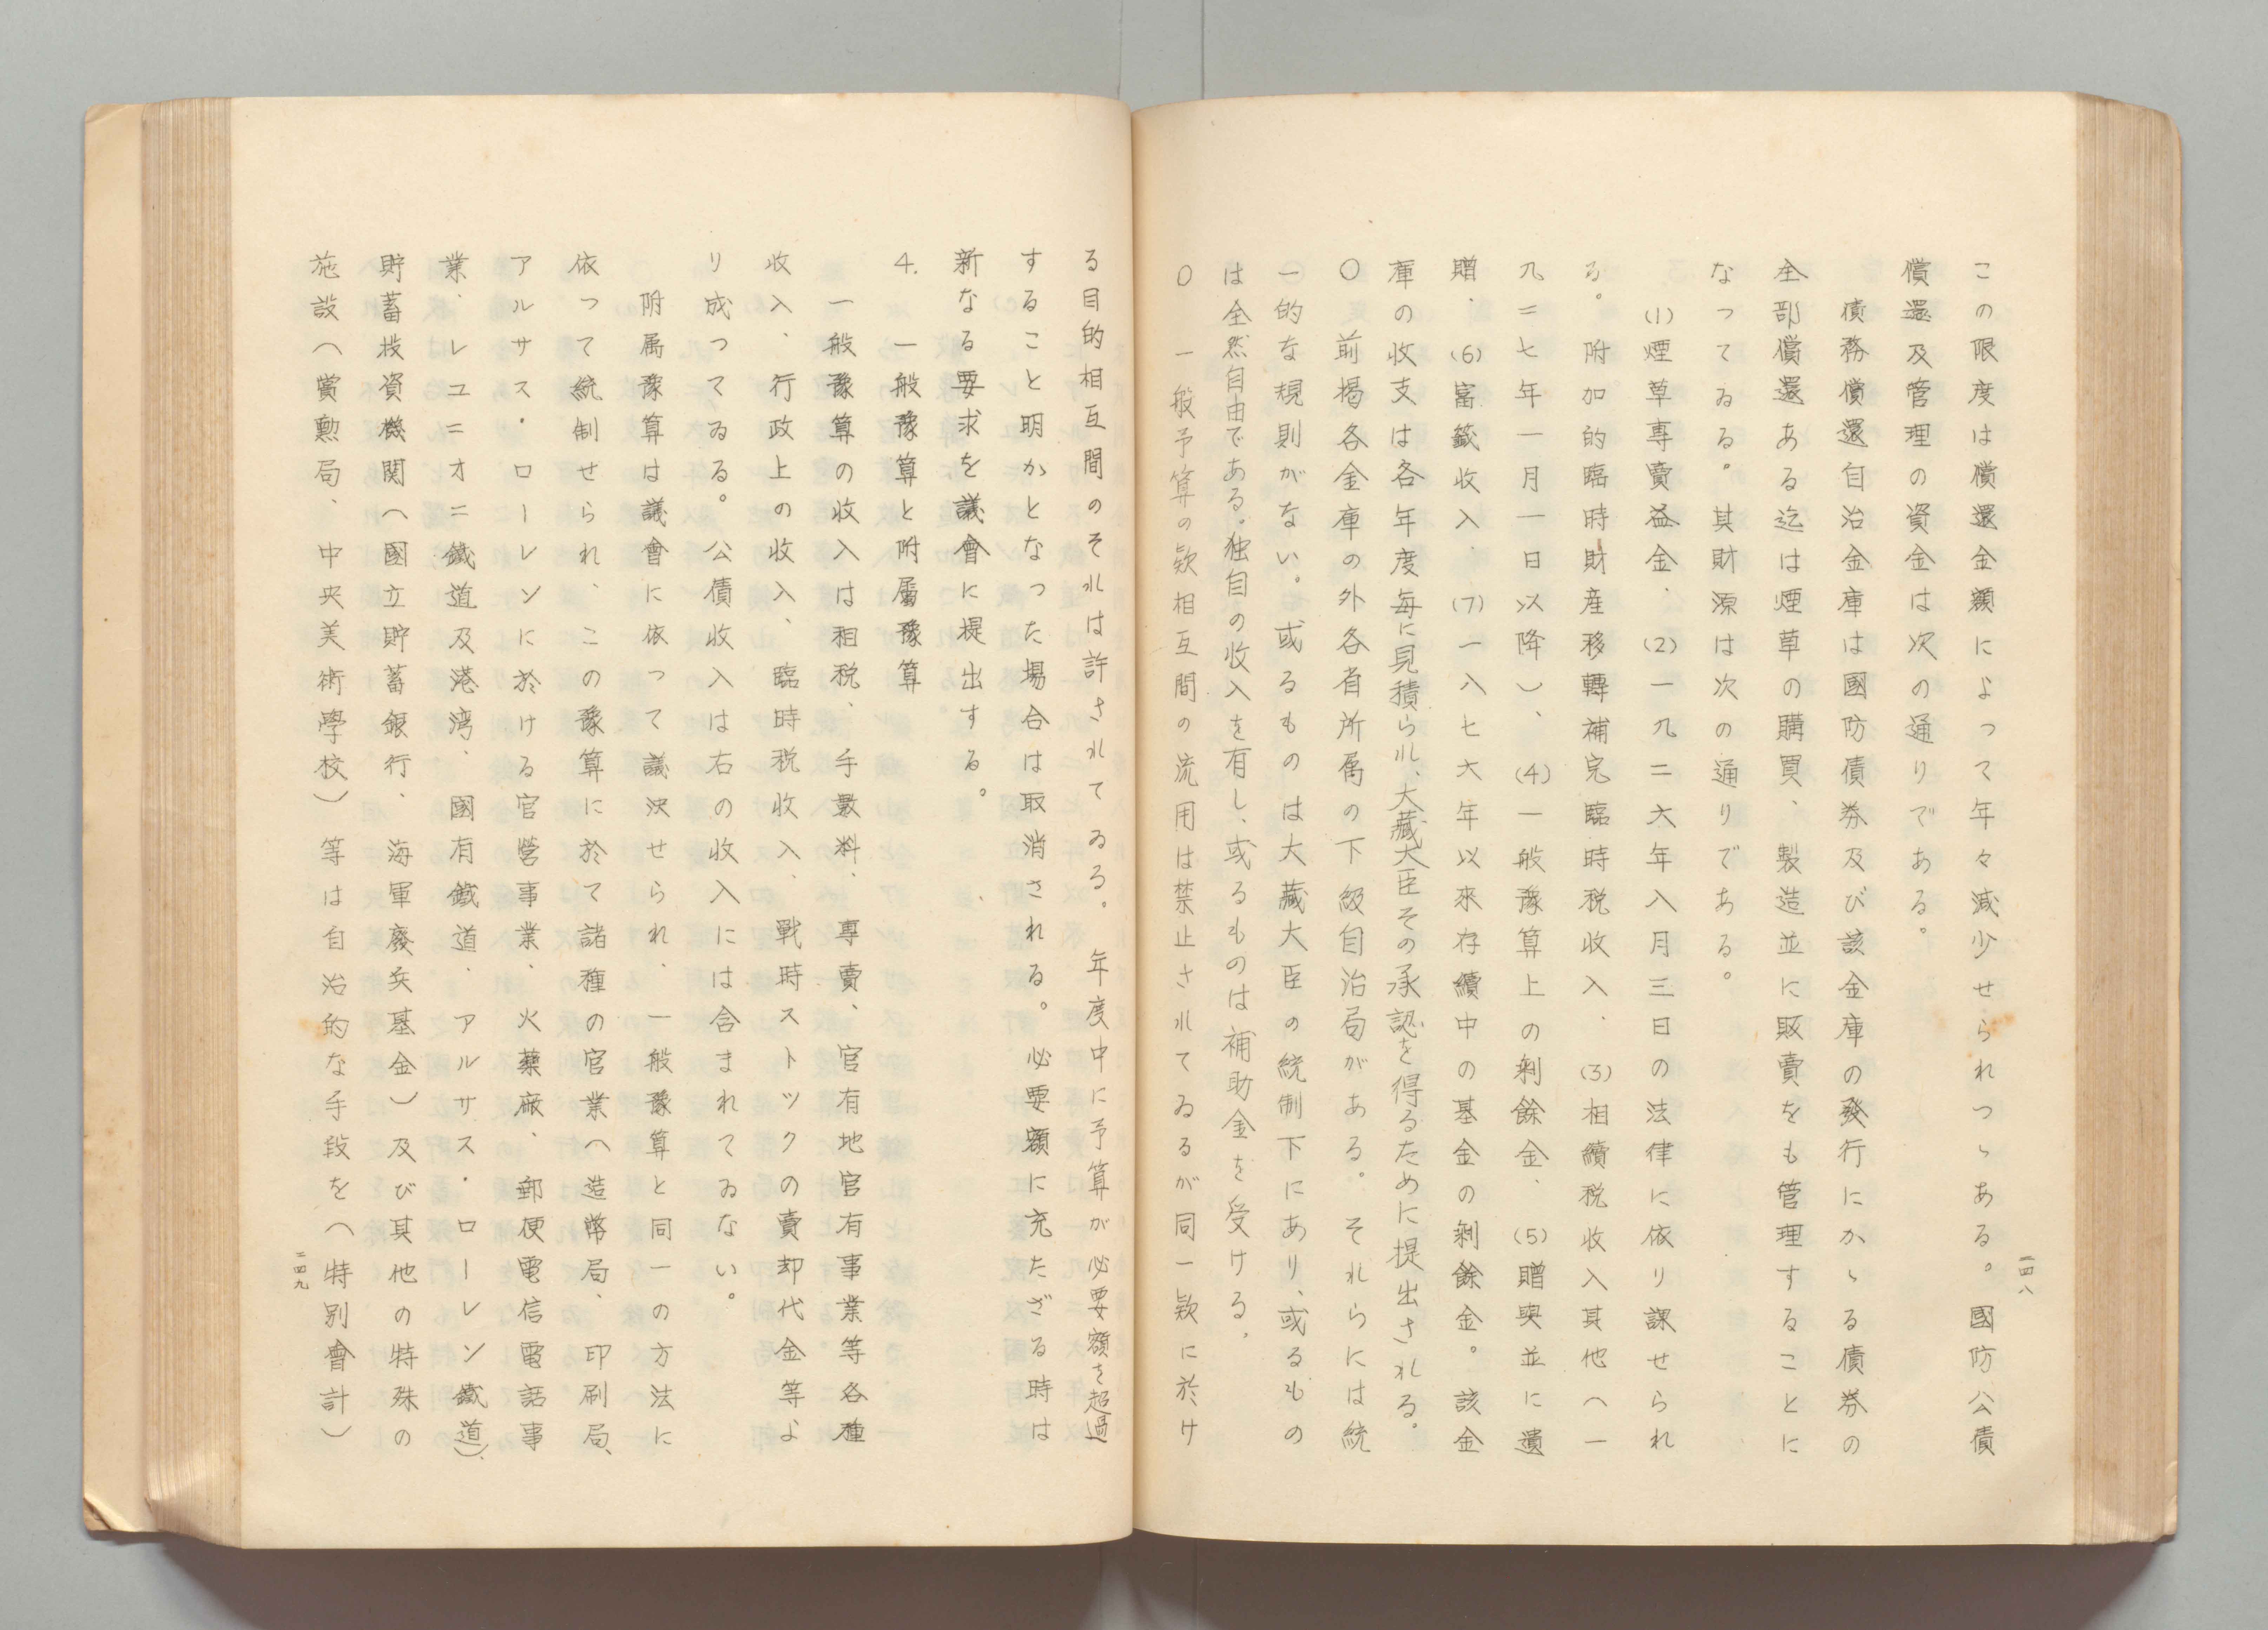 この限度は償還金額によって年々減少せられつゝある。國防公債
償還及管理の資金は次の通りである。
債務償還自治金庫は國防債券及び該金庫の發行にかゝる債券の
全部償還ある迄は煙草の購買、製造並に販賣をも管理することに
なってゐる。其財源は次の通りである。
(1)煙草専賣益金、(2)一九二六年八月三日の法律に依り課せられ
る。附加的臨時財産移轉補完臨時税收入、(3)相續税收入其他(一
九二七年一月一日以降)、(4)一般豫算上の剰餘金、(5)贈與並に遺
贈、(6)富籤收入、(7)一八七六年以來存續中の基金の剰餘金。該金
庫の收支は各年度毎に見積られ、大藏大臣その承認を得るために提出される。
〇 前掲各金庫の外各省所属の下級自治局がある。それらには統
一的な規則がない。或るものは大藏大臣の統制下にあり、或るもの
は全然自由である。独自の收入を有し、或るものは補助金を受ける。
〇 一般予算の款相互間の流用は禁止されてゐるが同一款に於け
二四八
る目的相互間のそれは許されてゐる。年度中に予算が必要額を超過
すること明かとなった場合は取消される。必要額に充たざる時は
新なる要求を議會に提出する。
4. 一般豫算と附屬豫算
一般豫算の收入は租税、手數料、専賣、官有地官有事業等各種
收入、行政上の收入、臨時税收入、戰時ストックの賣却代金等よ
り成ってゐる。公債收入は右の收入には含まれてゐない。
附属豫算は議會に依って議決せられ、一般豫算と同一の方法に
依って統制せられ、この豫算に於て諸種の官業(造幣局、印刷局、
アルサス・ローレンに於ける官營事業、火藥廠、郵便電信電話事
業、レユニオン鐵道及港湾、國有鐵道、アルサス・ローレン鐵道)、
貯蓄投資機関(國立貯蓄銀行、海軍廢兵基金)及び其他の特殊の
施設(賞勲局、中央美術學校)等は自治的な手段を(特別會計)
二四九